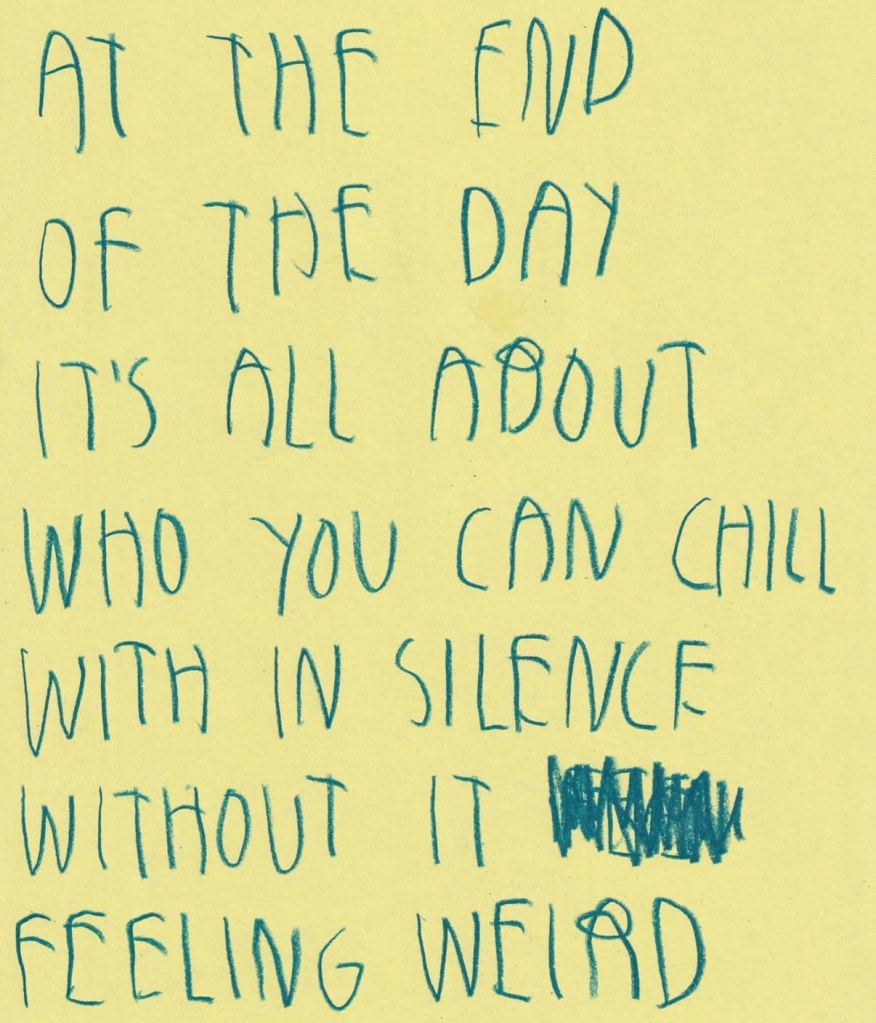 AT THE END
OF THE DAY
IT'S ALL ABOUT
WHO YOU CAN CHILL
WITH IN SILENCE
WITHOUT IT
FEELING WEIRD